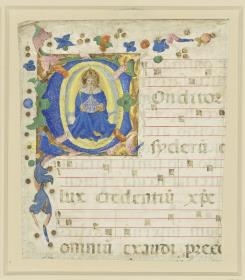 COnditor
syderū
lux credentiū xp̄e
omniū exaudi prece